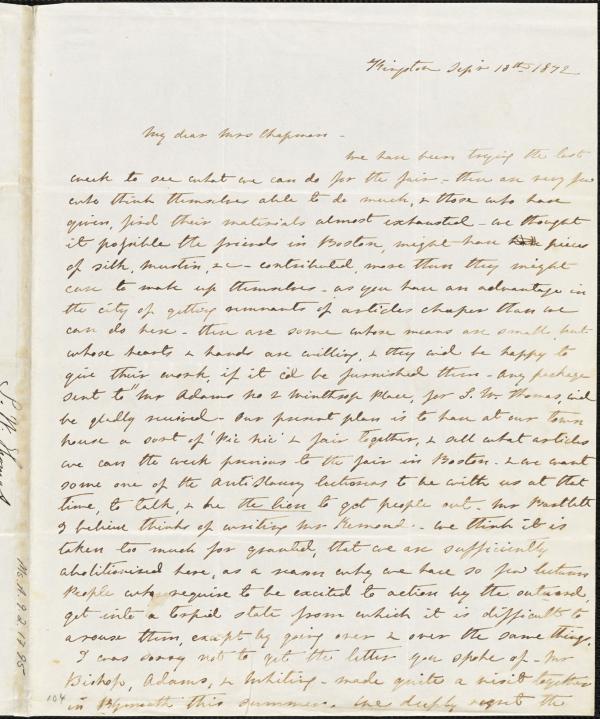 Kingston Sepr 18th 1842
My dear Mrs Chapman -
We have been trying the last
week to see what we can do for the fair - there are very few
who think themselves able to do much, & those who have
given, find their materials almost exhausted - we thought
it possible the friends in Boston, might have pieces
of silk, muslin, &c - contributed, more than they might
care to make up themselves - as you have an advantage in
the city of getting remnants of articles cheaper than we
can do here - there are some whose means are small, but
whose hearts & hands are willing, & they wd be happy to
give their work, if it cd be furnished them - any package
sent to "Mr Adams No 2 Winthrop Place, for L. W. Thomas, wd
be gladly received - Our present plan is to have at our town
house a sort of 'Pic Nic' & fair together, & sell what articles
we can the week previous to the fair in Boston - & we want
some one of the AntiSlavery lecturers to be with us at that
time, to talk, & be the lion to get people out - Mr Bartlett
I believe thinks of writing Mr Remond - we think it is
taken too much for granted, that we are sufficiently
abolitionised here, as a reason why we have so few lectures
People who require to be excited to action by the outward,
get into a torpid state from which it is difficult to
arouse them, except by going over & over the same things.
I was sorry not to get the letter you spoke of - Mr
Bishop, Adams, & Whiting - made quite a visit together
in Plymouth this summer. We deeply regret the
104
L. W. Thomas
Ms.A.9.2.17.85